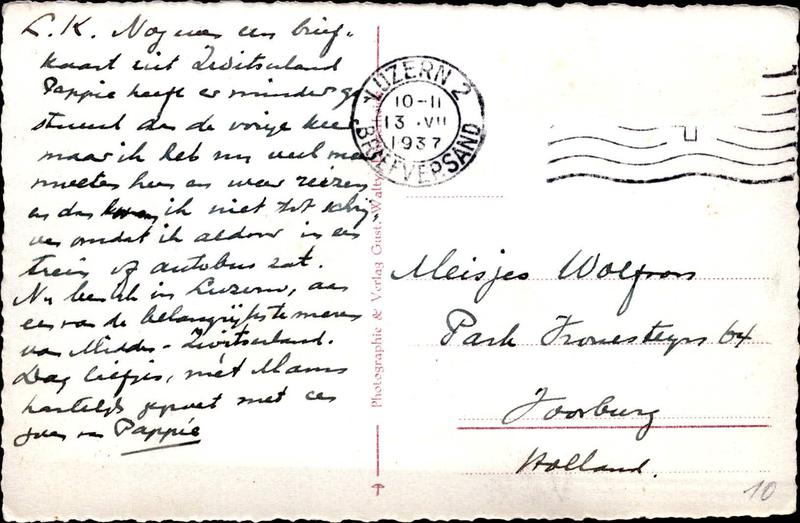 L. K. Nog eens een brief-
kaart uit Zwitserland
Pappie heeft er minder ge
stuurd dan de vorige keer
maar ik heb nu veel meer
moeten heen en weer reizen
en dan kwam ik niet tot schrij-
ven omdat ik aldoor in een
trein of autobus zat.
Nu ben ik in Luzern, aan
een van de belangrijkste meren
van Midden-Zwitserland.
Dag liefjes, met Mams
hartelijk gegroet met een
zoen van Pappie
LUZERN 2
10-11
13.VII
1937
BRIEFVERSAND
Photographie & Verlag Gust. Walte
Meisjes Wolfson
Park Vronesteyn 64
Voorburg
Holland.
10